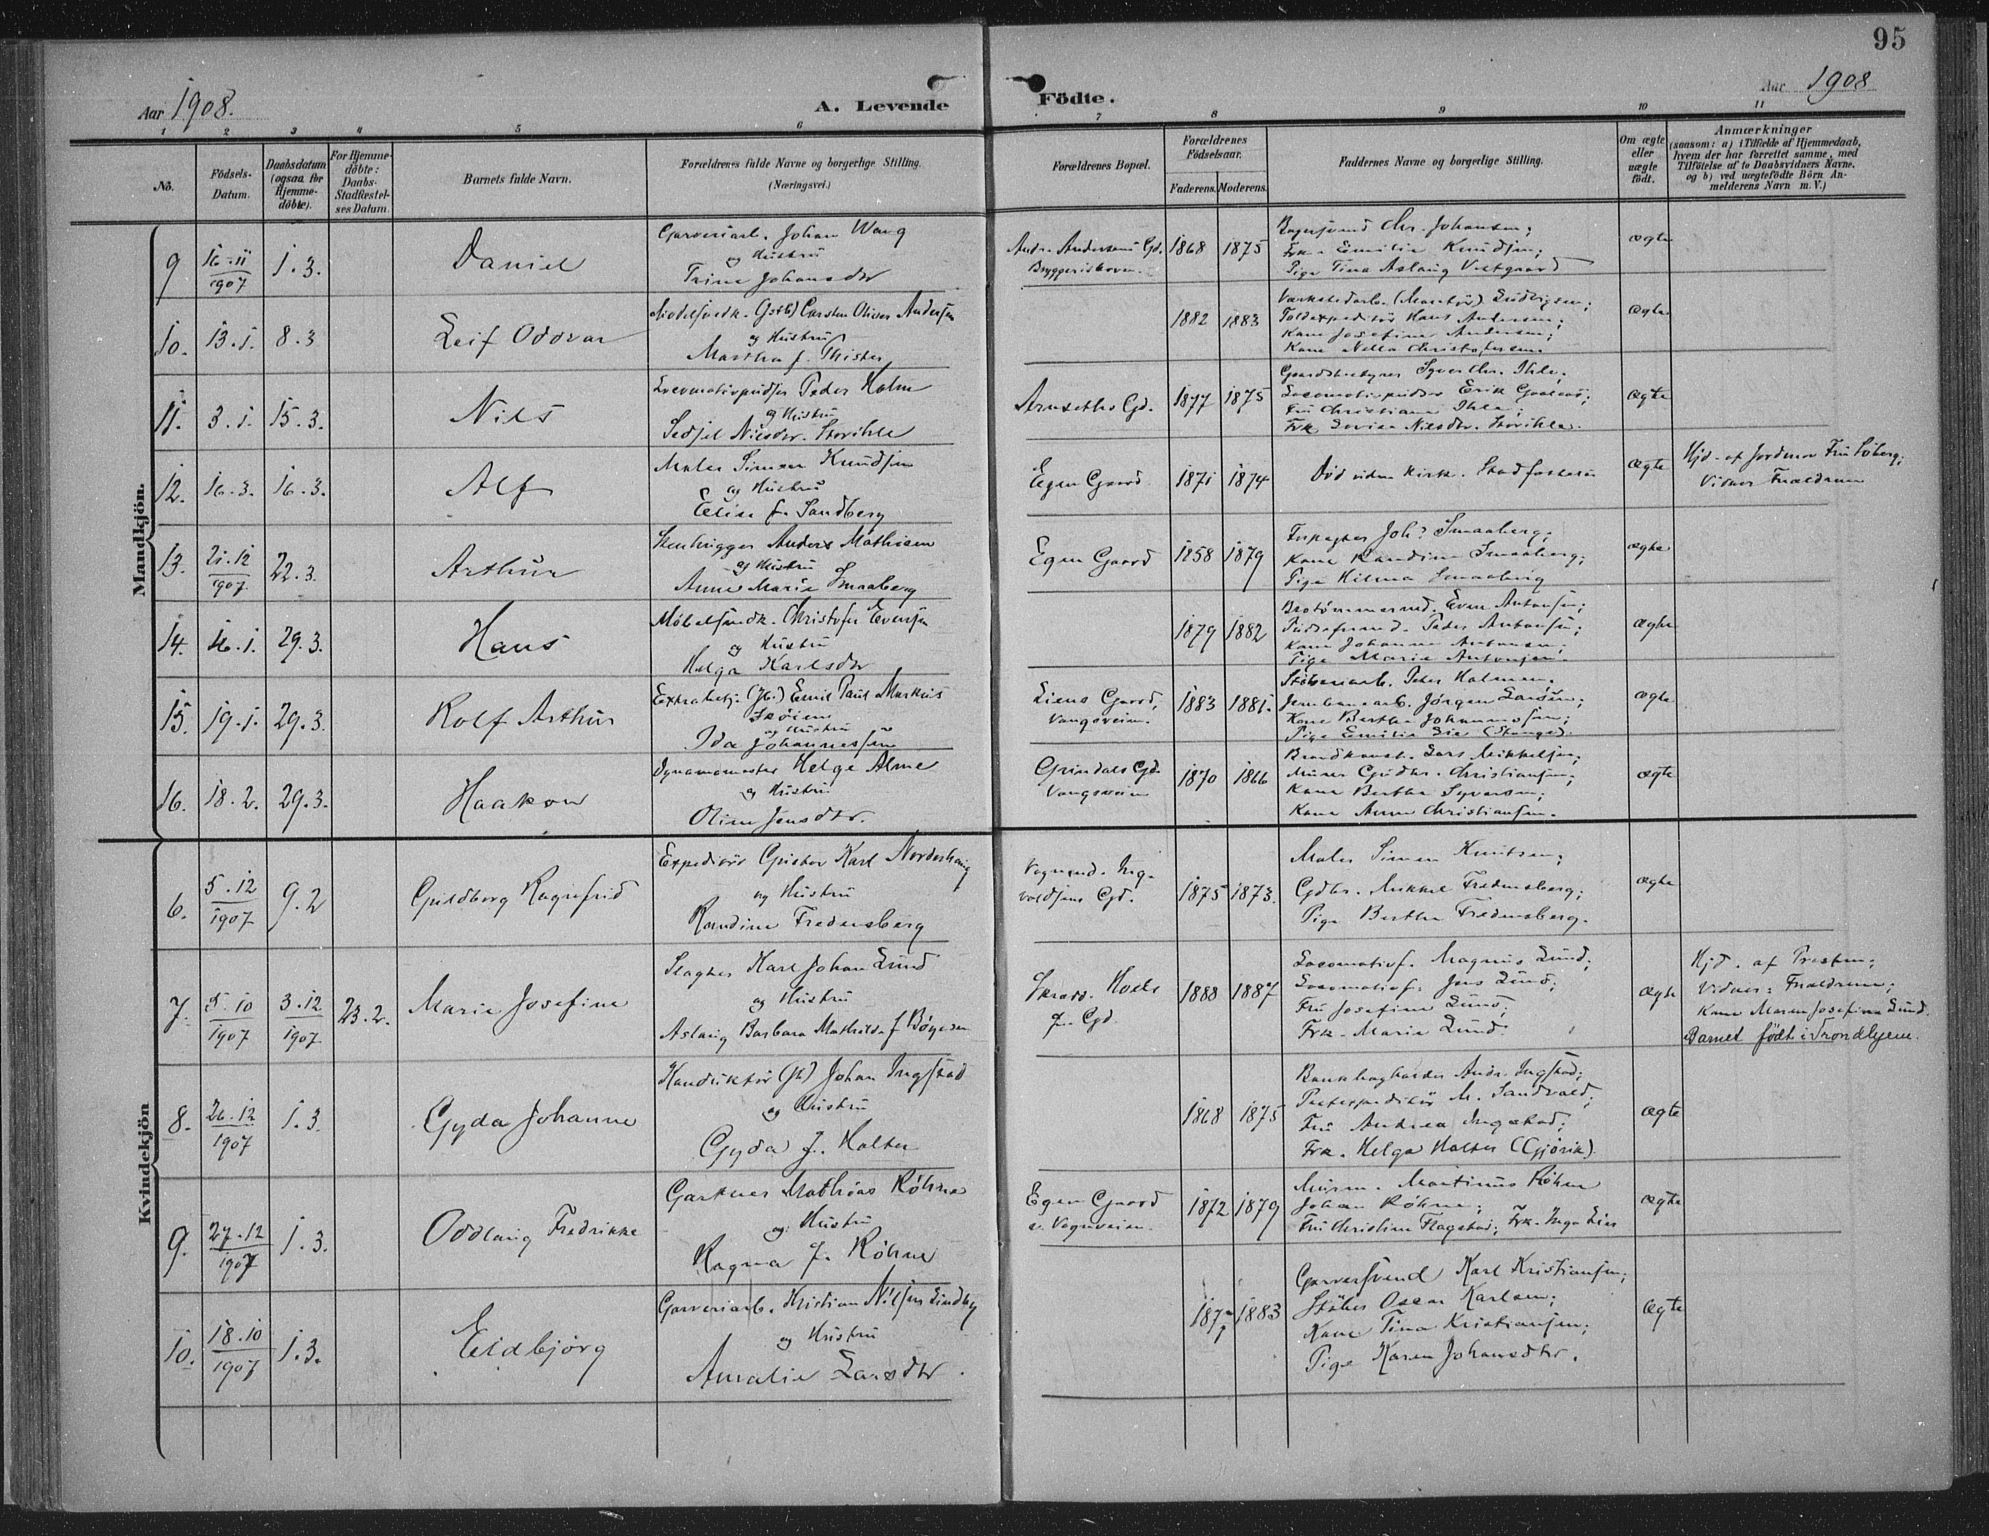 95
Aar 1908.
A. Levende
Födte.
Aar 1908
1 2 3 4 5 6 7 8 9 10 11
No.
Födsels-
Datum.
Daabsdatum
(ogsaa for
Hjemme-
döbte).
For Hjemme-
döbte:
Daabs-
Stadfæstel-
ses Datum.
Barnets fulde Navn.
Forældrenes fulde Navne og borgerlige Stilling.
(Næringsvei.)
Forældrenes Bopæl.
Forældrenes
Födselsaar.
Faderens. Moderens.
Faddernes Navne og borgerlige Stilling.
Om ægte
eller
uægte
födt.
Anmærkninger
(saasom: a) i Tilfælde af Hjemmedaab,
hvem der har forrettet samme, med
Tilföielse af to Daabsvidners Navne,
og b) ved uægtefödte Börn An-
melderens Navn m. V.)
Mandkjön.
9 16.11 1907 1.3. Daniel
Garveriarb. Johan Wang
og Hustru
Trine Johansdtr
Andr. Andersens Gd.
1868 1875
Chr. Johansen;
Frk. Emilie Knudsen;
Pige Tina Aslaug Vestgaard
ægte
10. 13.1. 8.3 Leif Oddvar
Carsten Oliver Andersen
og Hustru
Martha f. Thister
1882 1883
Toldexpeditör Hans Andersen;
Kone Josefine Andersen;
Kone Nella Christofersen.
ægte
11. 3.1. 15.3. Nils
Locomotivpudser Peder Holm
og Hustru
Sedsel Nilsdtr. Storihle
Arnseths Gd.
1877 1875
Gaardbestyrer Syver Chr. Ihle;
Locomotivpudser Erik
Fru Christiane Ihle;
Frk Lovise Nilsdtr. Storihle.
ægte
12. 16.3. 16.3. Alf
Maler Simen Knudsen
og Hustru
Elise f. Sandberg
Egen Gaard
1871 1874
Död uden kirk. Stadfæstelse
ægte
Hjd. af Jordmor Fru
Vidner Forældrene
13. 21.12 1907 22.3. Arthur
Stenhugger Anders Mathisen
og Hustru
Anne Marie Smaaberg
Egen Gaard
1858 1879
Forpagter Joh. Smaaberg;
Kone Randine Smaaberg;
Pige Hilma Smaaberg
ægte
14. 16.1. 29.3. Hans
Möbelsnedk. Christofer Evensen
og Hustru
Helga Karlsdtr
1879 1882
Even Antonsen;
Peder Antonsen;
Kone Johanne Antonsen;
Pige Marie Antonsen.
ægte
15. 19.1. 29.3. Rolf Arthur
Extrabetj. (Jb.) Emil Paul Markus
Sköien
og Hustru
Ida Johannessen
Liens Gaard,
Vangsveien.
1883 1881.
Peter Holmen.
Jernban.arb. Jörgen Larsen;
Kone Berthe Johannessen;
Pige Emilie Lie (Stange).
ægte
16. 18.2. 29.3. Haakon
Dynamomester Helge Alme
og Hustru
Oline Jensdtr.
Grindals Gd.
Vangsveien
1870 1866
Brandkonst. Lars Mikkelsen;
Murer Gudbr. Christiansen;
Kone Berthe Syversen;
Kone Anne Christiansen.
ægte
Kvindekjön
6. 5.12 1907 9.2 Guldborg Ragnfrid
Expeditör Gustav Karl Nordeshaug
og Hustru
Randine Fredensberg
Vognmd. Ing-
valdsens Gd.
1875 1873.
Maler Simen Knutsen;
Gdbr. Mikkel Fredensberg;
Pige Berthe Fredensberg.
ægte
7. 5.10 1907 3.12 1907 23.2. Marie Josefine
Slagter Karl Johan Lund
og Hustru
Aslaug Barbara Mathilde f. Börgesen
Skræd. Hoels
Gd
1888 1887
Locomotivf. Magnus Lund;
Locomotivf. Jens Lund;
Fru Josefine Lund;
Frk. Marie Lund
ægte
Hjd. af Presten;
Vidner: Forældrene;
Kone Maren Josefine Lund.
Barnet födt i Trondhjem.
8. 26.12 1907 1.3. Gyda Johanne
Konduktör (Jb) Johan Ingstad
og Hustru
Gyda f. Holter
1868 1875
Bankbogholder Andr. Ingstad;
Postexpeditör M. Sandvold;
Fru Andrea Ingstad;
Frk. Helga Holter (Gjövik).
ægte
9. 27.12 1907 1.3. Oddlaug Fredrikke
Gartner Mathias Röhne
og Hustru
Ragna f. Röhne
Egen Gaard
v. Vognveien.
1872 1879
Martinus Röhne
Johan Röhne;
Fru Christine Flagstad; Frk. Inga Lies
ægte
10. 18.10 1907 1.3. Eldbjörg
Garveriarb. Kristian Nilsen Lindby
og Hustru
Amalie Larsdtr.
1871 1883
Garversvend Karl Kristiansen;
Stöber Oscar Karlsen;
Kone Tina Kristiansen;
Pige Karen Johansdtr.
ægte